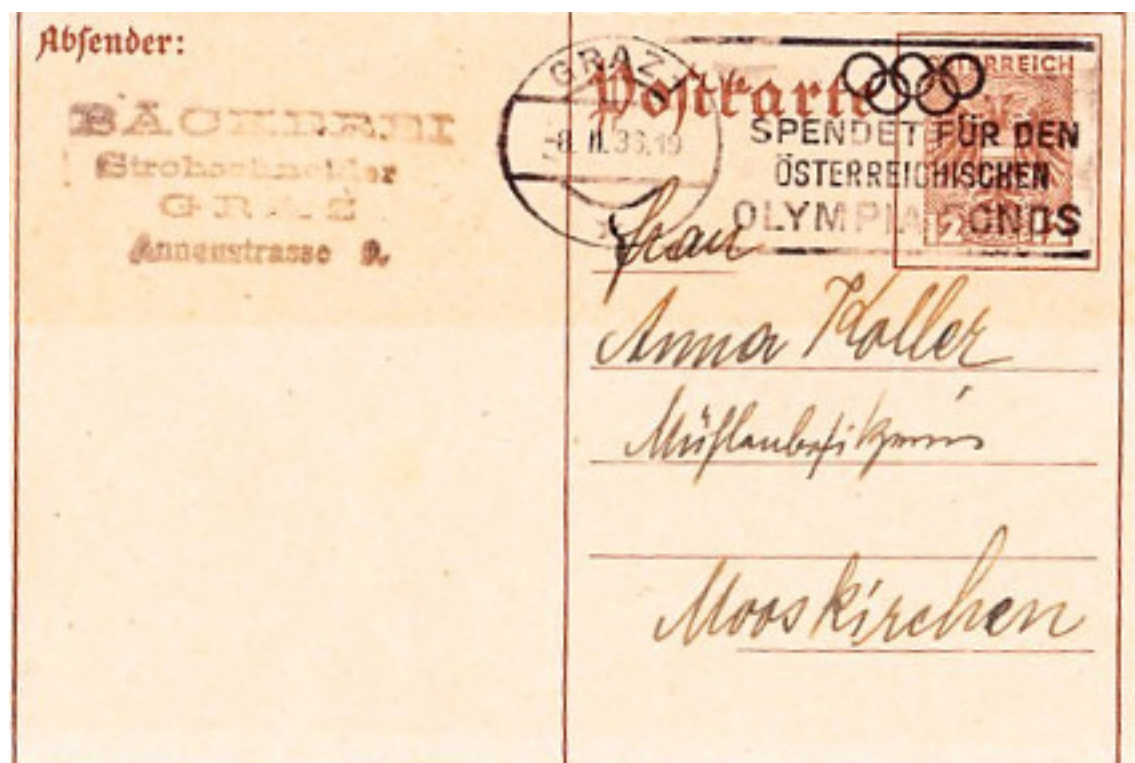 Absender:
BÄCKEREI
Strohschneider
GRAZ
Annenstrasse 9.
GRAZ
-8. II. 36.19
Postkarte
ÖSTERREICH
SPENDET FÜR DEN
ÖSTERREICHISCHEN
OLYMPIA FONDS
Frau
Anna Koller
Mühlenbesitzerin
Mooskirchen